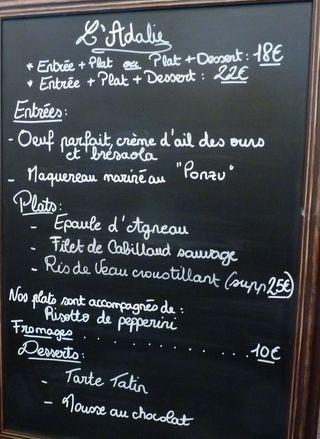 L'Adalie
* Entrée + Plat ou Plat + Dessert : 18€
* Entrée + Plat + Dessert : 22€
Entrées :
- Oeuf parfait, crème d'ail des ours
et brésaola
- Maquereau mariné au "Ponzu"
Plats :
- Epaule d'Agneau
- Filet de Cabillaud sauvage
- Ris de Veau croustillant (supp 25€)
Nos plats sont accompagnés de :
Risotto de pepperini
Fromages . . . . . . . . . . . . 10€
Desserts :
- Tarte Tatin
- Mousse au chocolat